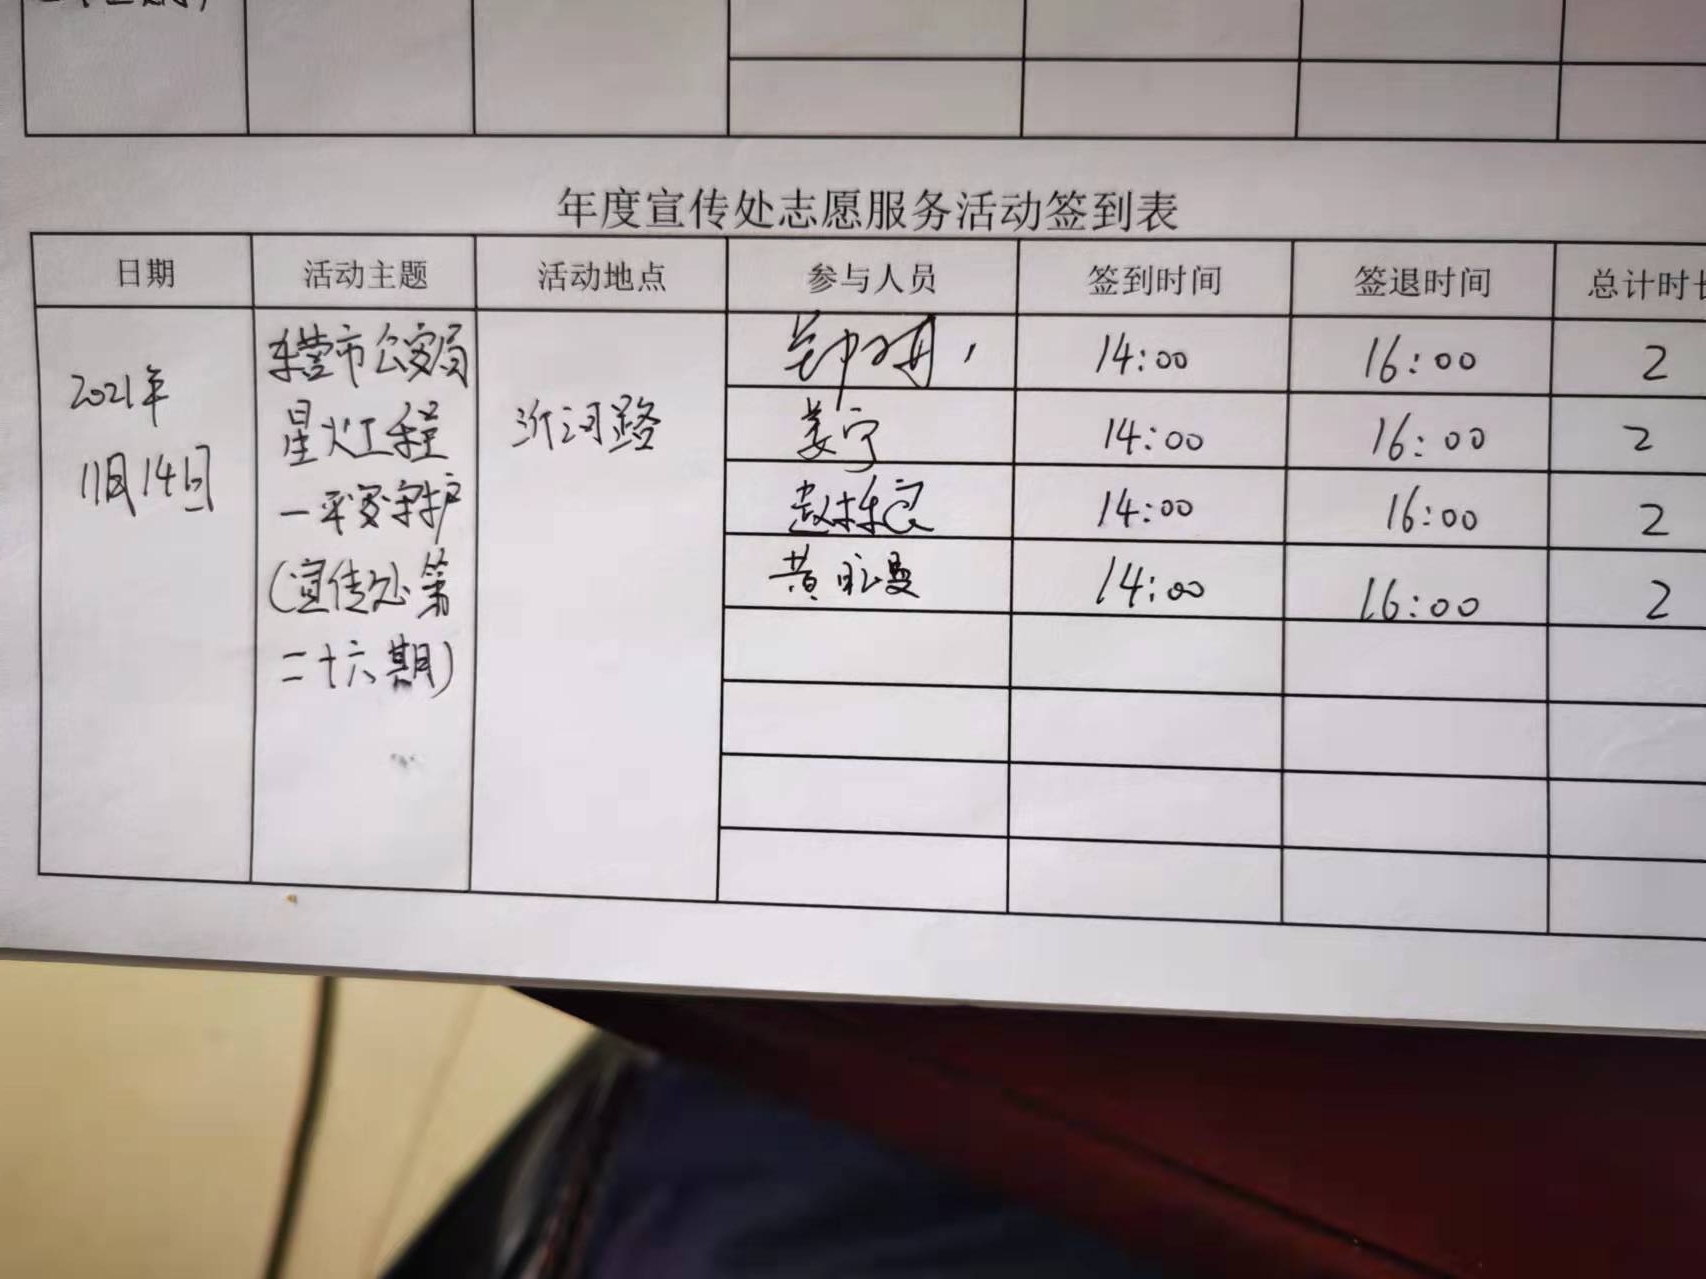 年度宣传处志愿服务活动签到表
日期 活动主题 活动地点 参与人员 签到时间 签退时间 总计时长
2021年
11月14日
东营市公安局
星火工程
一平安守护
(宣传处第
二十六期)
沂河路
14:00 16:00 2
姜宁 14:00 16:00 2
赵栋良 14:00 16:00 2
黄 14:00 16:00 2